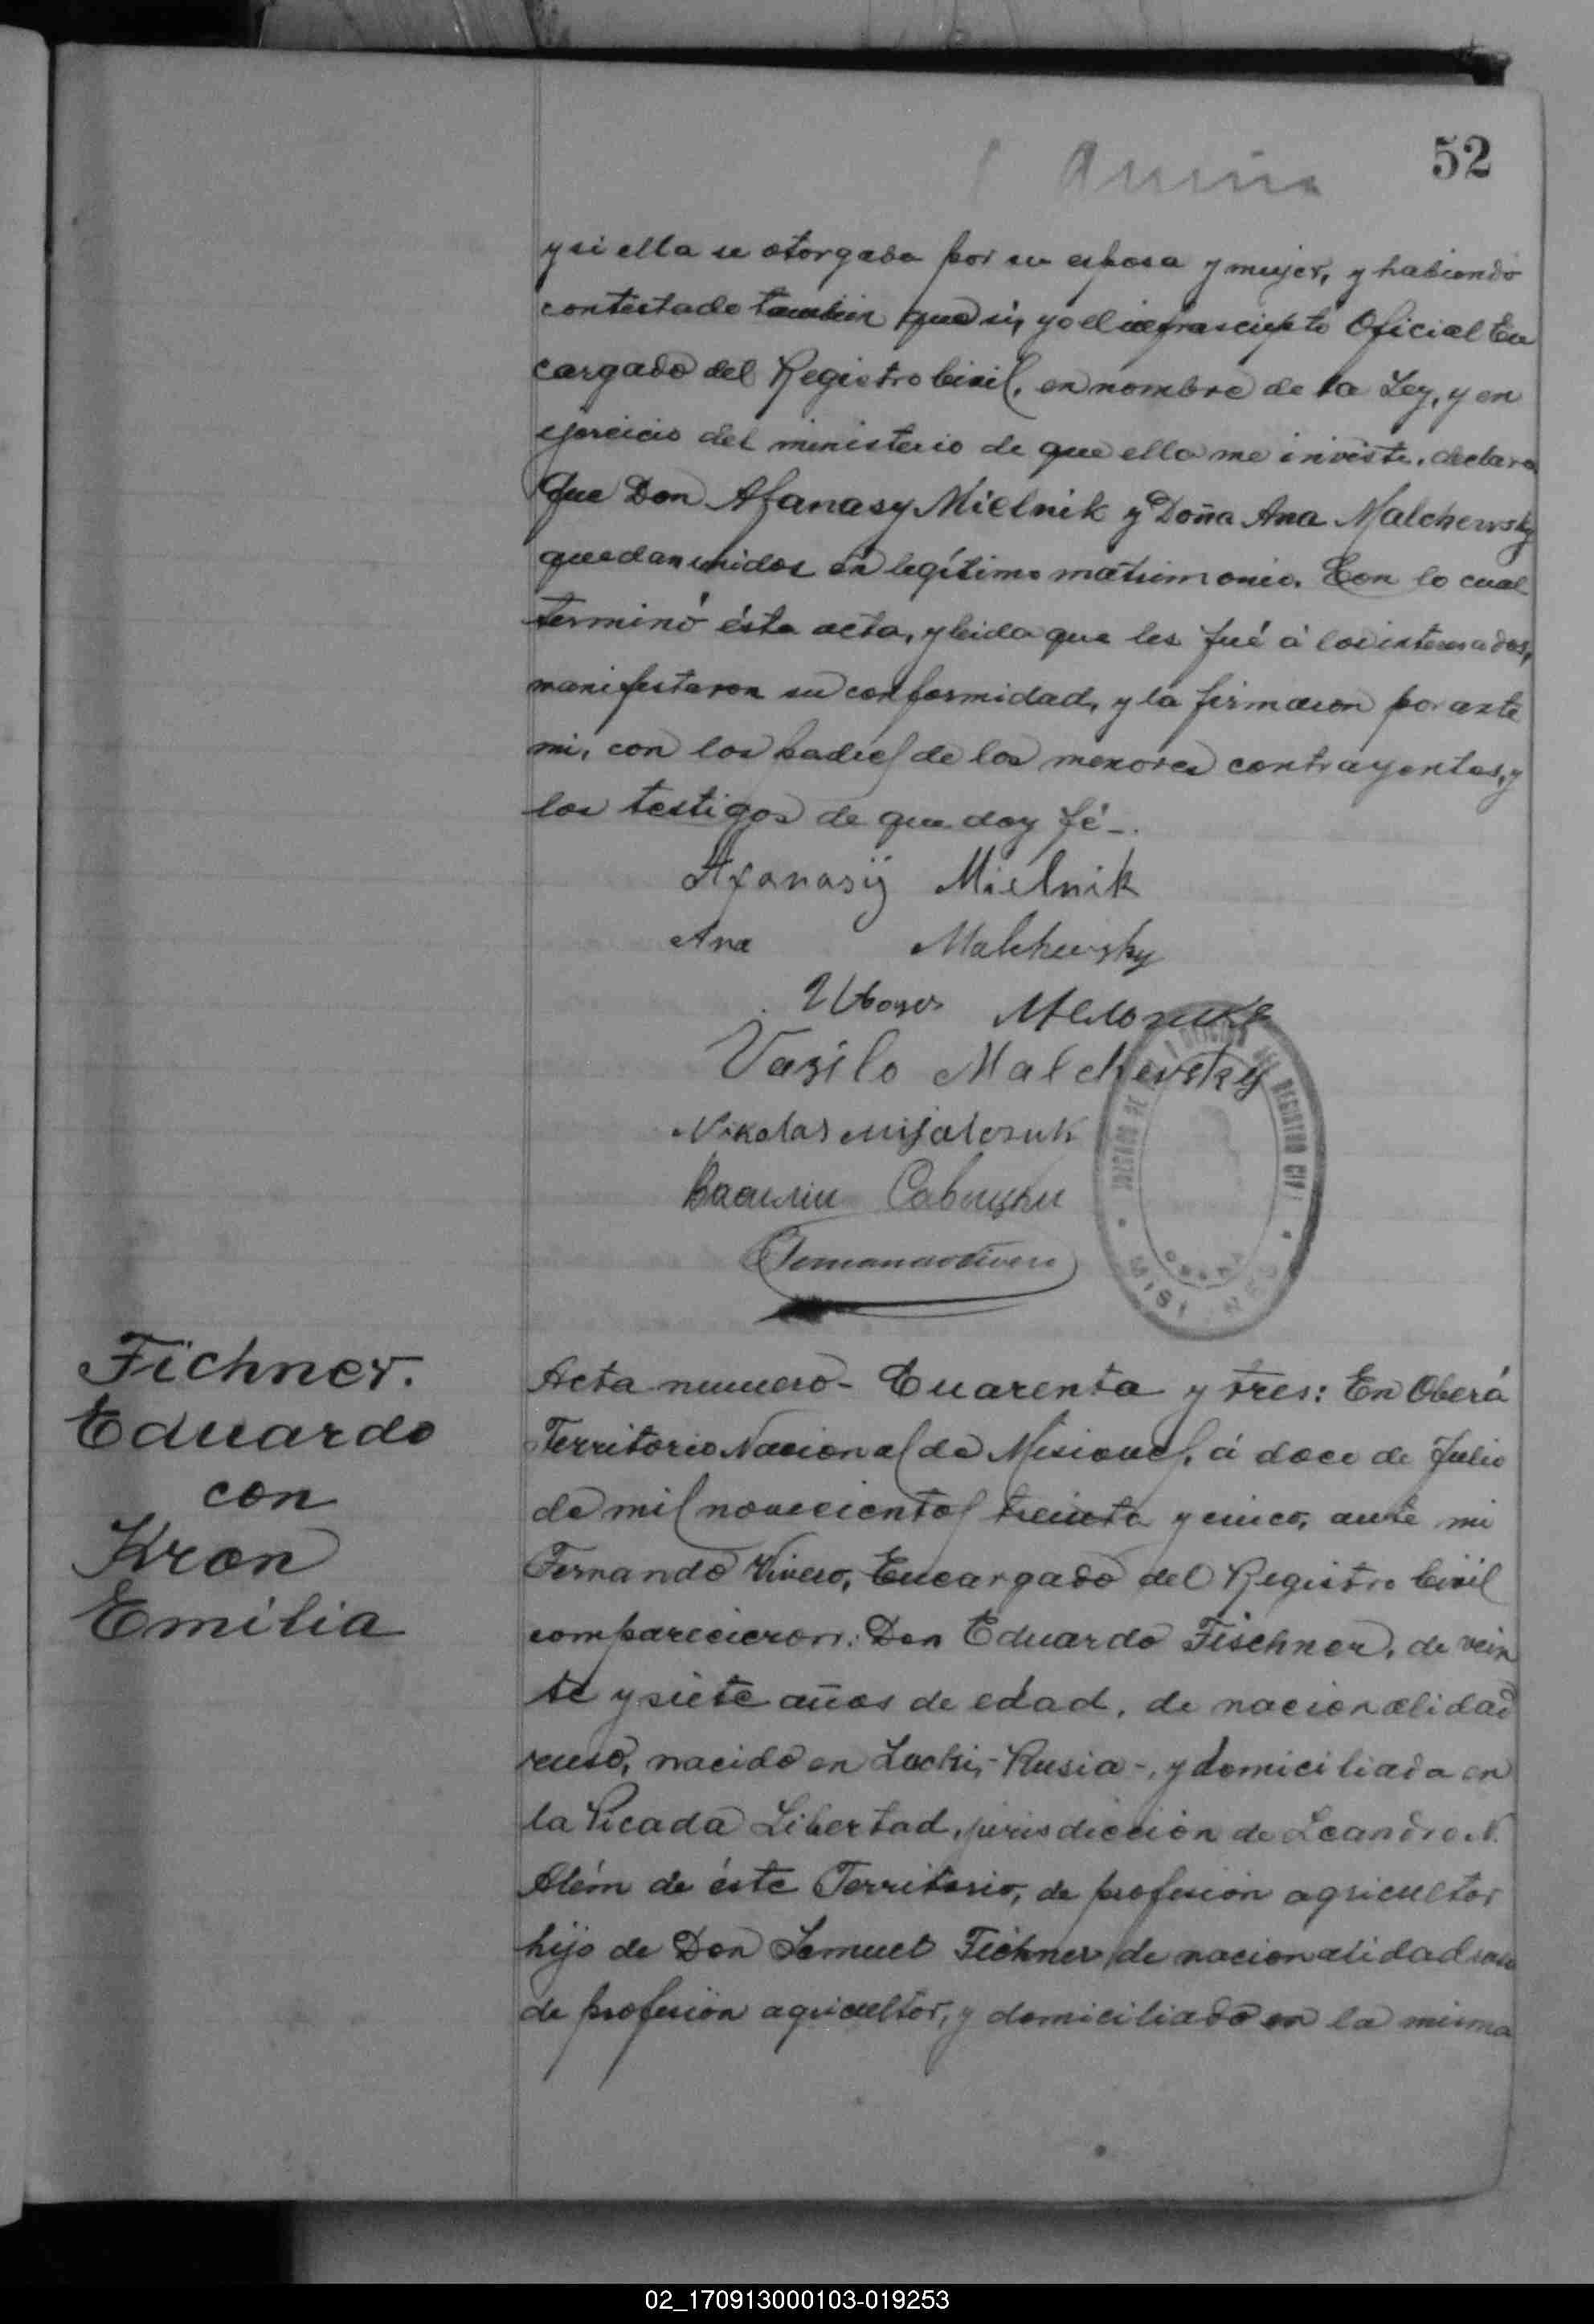 52
y si ella se otorgaba por su esposa y mujer, y habiendo
contestado tambien que si, yo el infrascripto Oficial En
cargado del Registro Civil, en nombre de la Ley, y en
ejercicio del ministerio de que ella me inviste, declaro
Que Don Afanasy Mielnik y Doña Ana Malchewsky
quedan unidos en legítimo matrimonio. Con lo cual
terminó ésta acta, y leida que les fué á los interesados,
manifestaron su conformidad, y la firmaron por ante
mi, con los padres de los menores contrayentes, y
los testigos de que doy fé-.
Afanasij Mielnik
Ana Malchewsky
Vasilo Malchevskey
Nikolas Mijalczuk
Василии Савицки
Fernando Vivero
REGISTRO CIVIL
OBERA
MISIONES
Fichner.
Eduardo
con
Kron
Emilia
Acta numero- Cuarenta y tres: En Oberá
Territorio Nacional de Misiones, á doce de Julio
de mil novecientos treinta y cinco, ante mi
Fernando Vivero, Encargado del Registro Civil
comparecieron: Don Eduardo Fischner, de vein
te y siete años de edad, de nacionalidad
ruso, nacido en Lucki,- Rusia-, y domiciliado en
la Picada Libertad, jurisdiccion de Leandro N.
Além de éste Territorio, de profesion agricultor
hijo de Don Samuel Fichner, de nacionalidad ruso
de profesion agricultor, y domiciliado en la misma
02_170913000103-019253